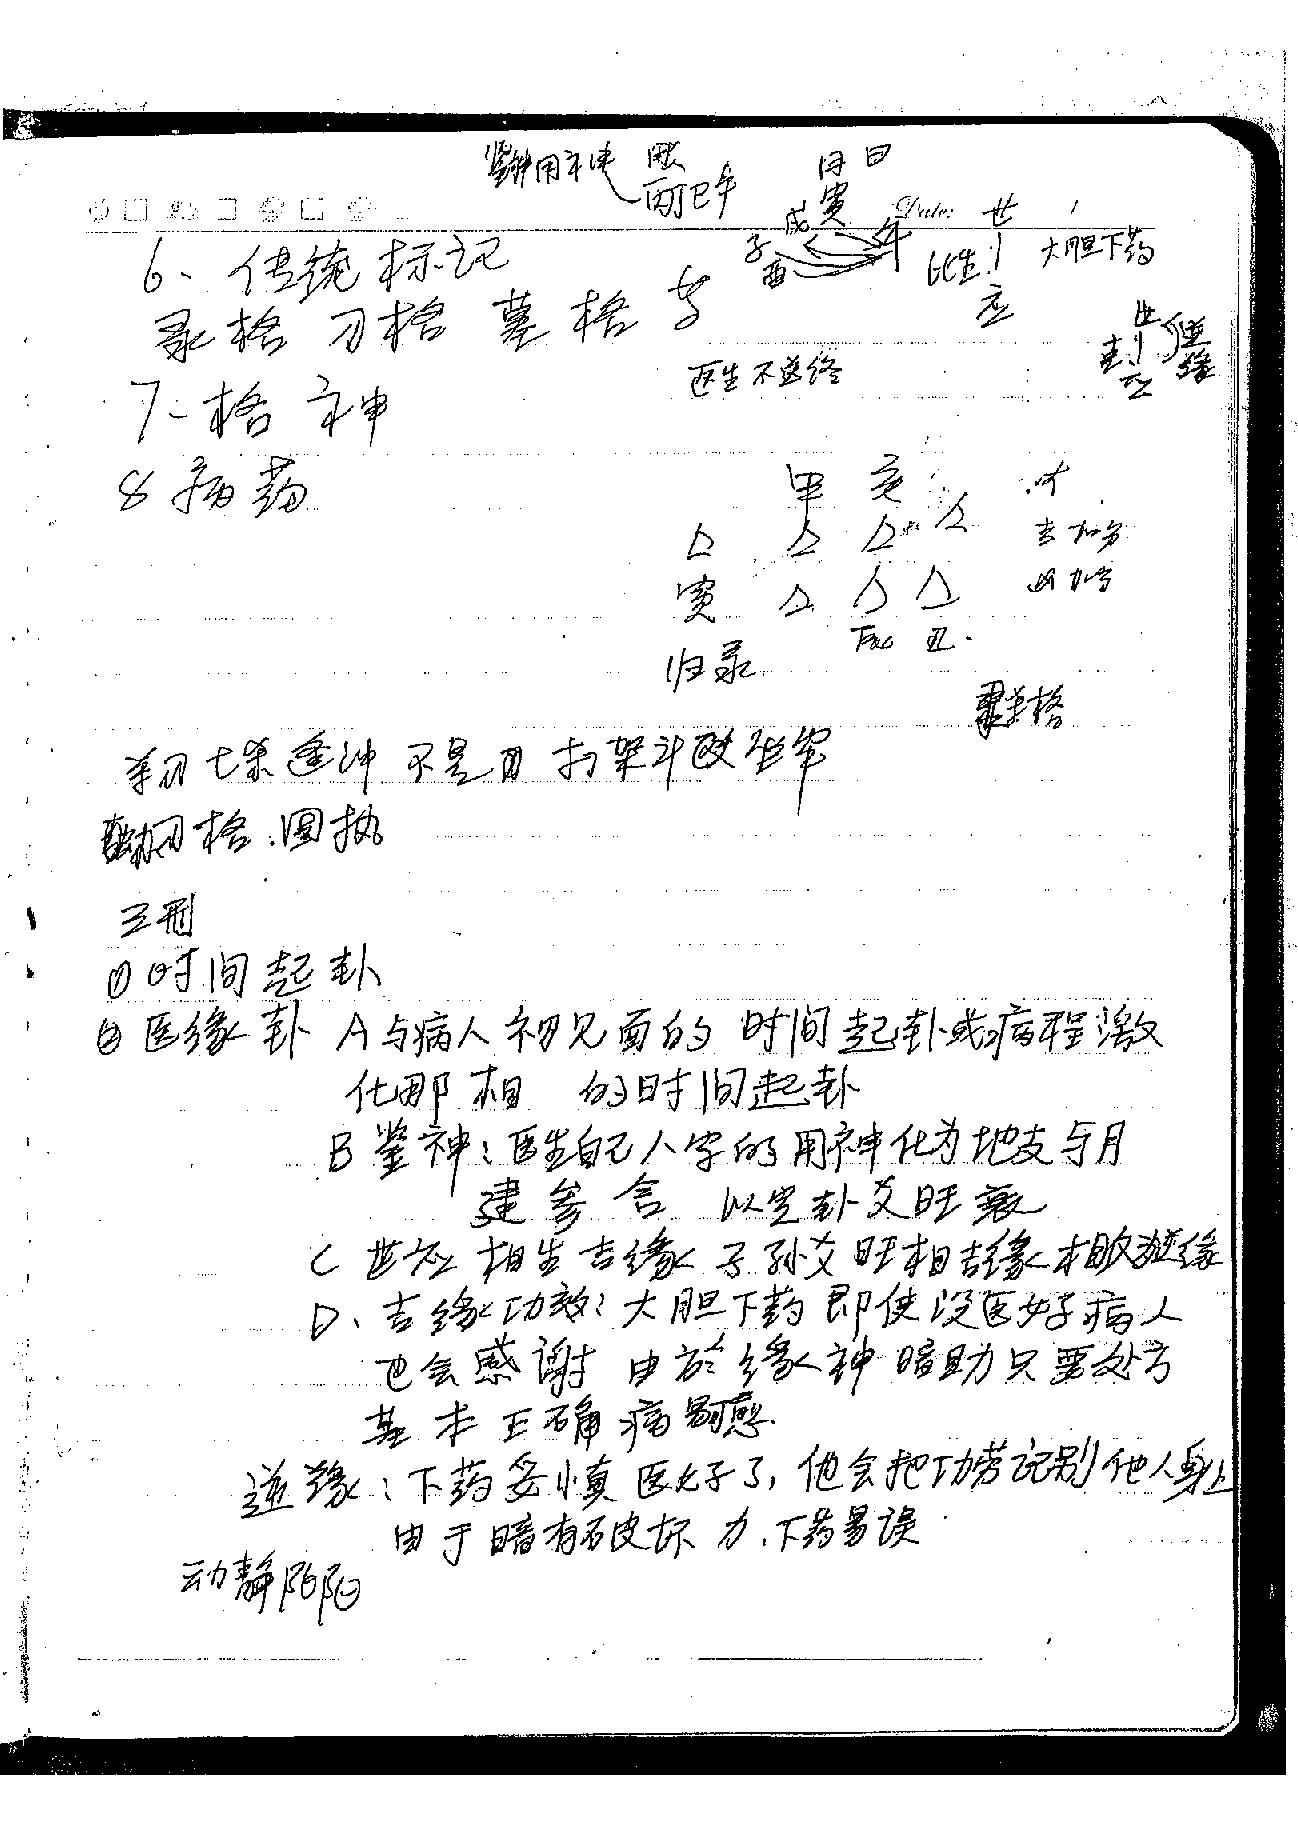 月 日
丙丁巳午
寅
戌
Date:
世
子
酉
年
比生
大胆下药
应
6、传统标记
录格 刃格 墓格 步
世
应
逆缘
医生不送终
7-格神
8 病药
甲 亥
寅
归录
羊刃七杀逢冲 不是 打架斗殴坐牢
刃格.固执
三刑
①时间起卦
②医缘卦 A与病人初见面的 时间起卦或病程激
化那相 的时间起卦
B 鉴神:医生自己八字的用神化为地支与月
建参合 以定卦爻旺衰
C 世应相生吉缘 子孙爻旺相吉缘 相
D、吉缘功效:大胆下药 即使没医好病人
也会感谢 由於缘神暗助只要处方
基本正确病 愈.
逆缘:下药要慎 医好了,他会把功劳记别他人身上
由于暗有破坏力.下药易误.
动静阴阳